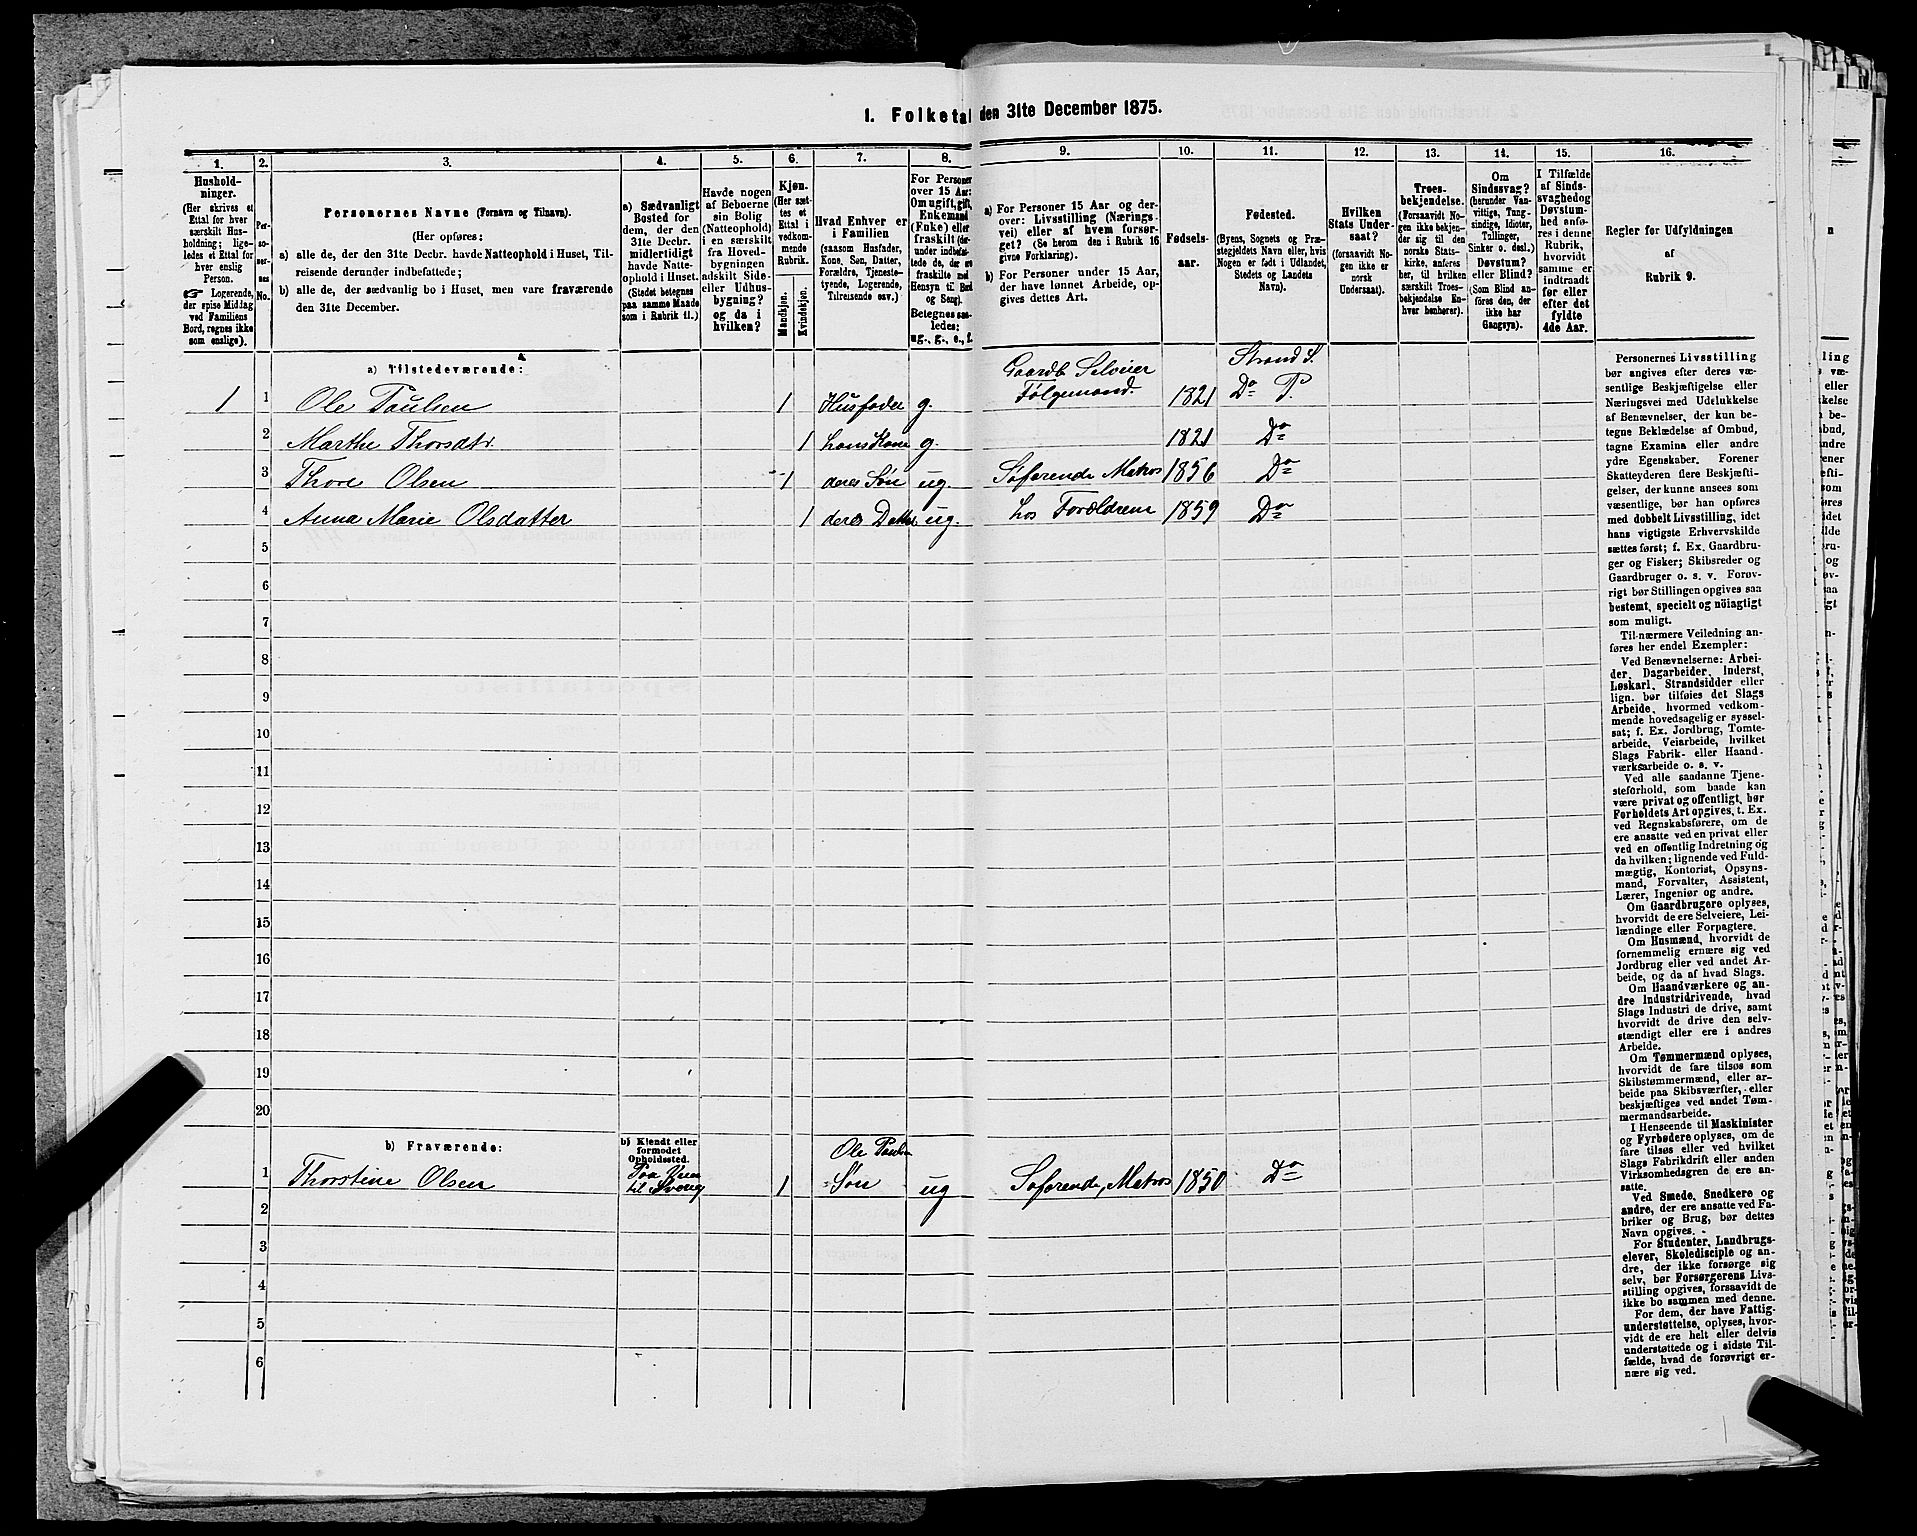 1. Folketal den 31te December 1875.
1. 2. 3. 4. 5. 6. 7. 8. 9. 10. 11. 12. 13. 14. 15. 16.
Husholdninger.
(Her skrives et
Ettal for hver
særskilt Husholdning;
ligeledes et Ettal for
hver enslig
Person.
☞ Logerende,
der spise Middag
ved Familiens
Bord, regnes ikke
som enslige).
Personernes No.
Personernes Navne (Fornavn og Tilnavn).
(Her opføres:
a) alle de, der den 31te Decbr. havde Natteophold i Huset, Tilreisende
derunder indbefattede;
b) alle de, der sædvanlig bo i Huset, men vare fraværende
den 31te December.
a) Sædvanligt
Bosted for
dem, der den
31te Decbr.
midlertidigt
havde Natteophold
i Huset.
(Stedet betegnes
paa samme Maade
som i Rubrik 11.)
Havde nogen
af Beboerne
sin Bolig
(Natteophold)
i en særskilt
fra Hovedbygningen
adskilt Side-
eller Udhusbygning?
og da i
hvilken?
Kjøn.
(Her sættes
et
Ettal i
vedkommende
Rubrik.
Mandkjøn.
Kvindekjøn.
Hvad Enhver er
i Familien
(saasom Husfader,
Kone, Søn, Datter,
Forældre, Tjenestetyende,
Logerende,
Tilreisende osv.)
For Personer
over 15 Aar:
Om ugift, gift,
Enkemand
(Enke) eller
fraskilt (derunder
indbefattede
de, der ere
fraskilte med
Hensyn til Bord
og Seng).
Betegnes saaledes:
ug., g., e., f.
a) For Personer 15 Aar og derover:
Livsstilling (Næringsvei)
eller af hvem forsørget?
(Se herom den i Rubrik 16
givne Forklaring).
b) For Personer under 15 Aar,
der have lønnet Arbeide, opgives
dettes Art.
Fødselsaar.
Fødested.
(Byens, Sognets og Præstegjeldets
Navn eller, hvis
Nogen er født i Udlandet,
Stedets og Landets
Navn).
Hvilken
Stats Undersaat?
(forsaavidt Nogen
ikke er
norsk
Undersaat).
Troesbekjendelse.
(Forsaavidt Nogen
ikke bekjender
sig til den
norske Statskirke,
anføres
her, til hvilken
særskilt Troesbekjendelse
Enhver
henhører).
Om
Sindssvag?
(herunder Vanvittige,
Tungsindige,
Idioter,
Tullinger,
Sinker o. desl.)
Døvstum?
eller Blind?
(Som Blind anføres
den, der
ikke har
Gangsyn).
I Tilfælde
af Sindssvaghed
og
Døvstumhed
anføres
i denne
Rubrik,
hvorvidt
samme er
indtraadt
før eller
efter det
fyldte
4de Aar.
Regler for Udfyldningen
af
Rubrik 9.
a) Tilstedeværende:
1 1 Ole Paulsen 1 Husfader g. Gaardb Selveier Følgemand. 1821 Strand S. Do P.
2 Marthe Thorsdtr. 1 hans Kone g. 1821 Do
3 Thore Olsen 1 deres Søn ug. Søfarende Matros 1856 Do
4 Anna Marie Olsdatter 1 deres Datter ug. hos Forældrene 1859 Do
5
6
7
8
9
10
11
12
13
14
15
16
17
18
19
20
b) Fraværende:
b) Kjendt eller
formodet
Opholdssted.
1 Thorstine Olsen til Sverig 1 Ole Paulsen Søn ug Søfarende, Matros 1850 Do
2
3
4
5
6
Personernes Livsstilling
bør angives efter deres væsentlige
Beskjæftigelse eller
Næringsvei med Udelukkelse
af Benævnelser, der kun betegne
Beklædelse af Ombud,
tagne Examina eller andre
ydre Egenskaber. Forener
Skatteyderen flere Beskjæftigelser,
der kunne ansees som
væsentlige, bør han opføres
med dobbelt Livsstilling, idet
hans vigtigste Erhvervskilde
sættes først; f. Ex. Gaardbruger
og Fisker; Skibsreder og
Gaardbruger o. s. v. Forøvrigt
bør Stillingen opgives saa
bestemt, specielt og nöiagtigt
som muligt.
Til nærmere Veiledning anføres
her endel Exempler:
Ved Benævnelserne: Arbeider,
Dagarbeider, Inderst,
Løskarl, Strandsidder eller
lign. bør tilføies det Slags
Arbeide, hvormed vedkommende
hovedsagelig er sysselsat;
f. Ex. Jordbrug, Tomtearbeide,
Veiarbeide, hvilket
Slags Fabrik- eller Haandværksarbeide
o. s. v.
Ved alle saadanne Tjenesteforhold,
som baade kan
være privat og offentligt, bør
Forholdets Art opgives, t. Ex.
ved Regnskabsførere, om de
ere ansatte ved en privat eller
ved en offentlig Indretning og
da hvilken; lignende ved Fuldmægtig,
Kontorist, Opsynsmand,
Forvalter, Assistent,
Lærer, Ingeniør og andre.
Om Gaardbrugere oplyses,
hvorvidt de ere Selveiere, Leilændinge
eller Forpagtere.
Om Husmænd, hvorvidt de
fornemmelig ernære sig ved
Jordbrug eller ved andet Arbeide,
og da af hvad Slags.
Om Haandværkere og andre
Industridrivende, hvad
Slags Industri de drive, samt
hvorvidt de drive den selvstændigt
eller ere i andres
Arbeide.
Om Tømmermænd oplyses,
hvorvidt de fare tilsøs som
Skibstømmermænd, eller arbeide
paa Skibsværfter, eller
beskjæftiges ved andet Tømmermandsarbeide.
I Henseende til Maskinister
og Fyrbødere oplyses, om de
fare tilsøs eller ved hvilket
Slags Fabrikdrift eller anden
Virksomhedsgren de ere ansatte.
Ved Smede, Snedkere og
andre, der ere ansatte ved Fabriker
og Brug, bør dettes
Navn opgives.
For Studenter, Landbrugselever,
Skoledisciple og andre,
der ikke forsørge sig
selv, bør Forsørgerens Livsstilling
opgives, forsaavidt de
ikke bo sammen med denne.
For dem, der have Fattigunderstøttelse,
oplyses, hvorvidt
de ere helt eller delvis
understøttede og i sidste Tilfælde,
hvad de forøvrigt ernære
sig ved.